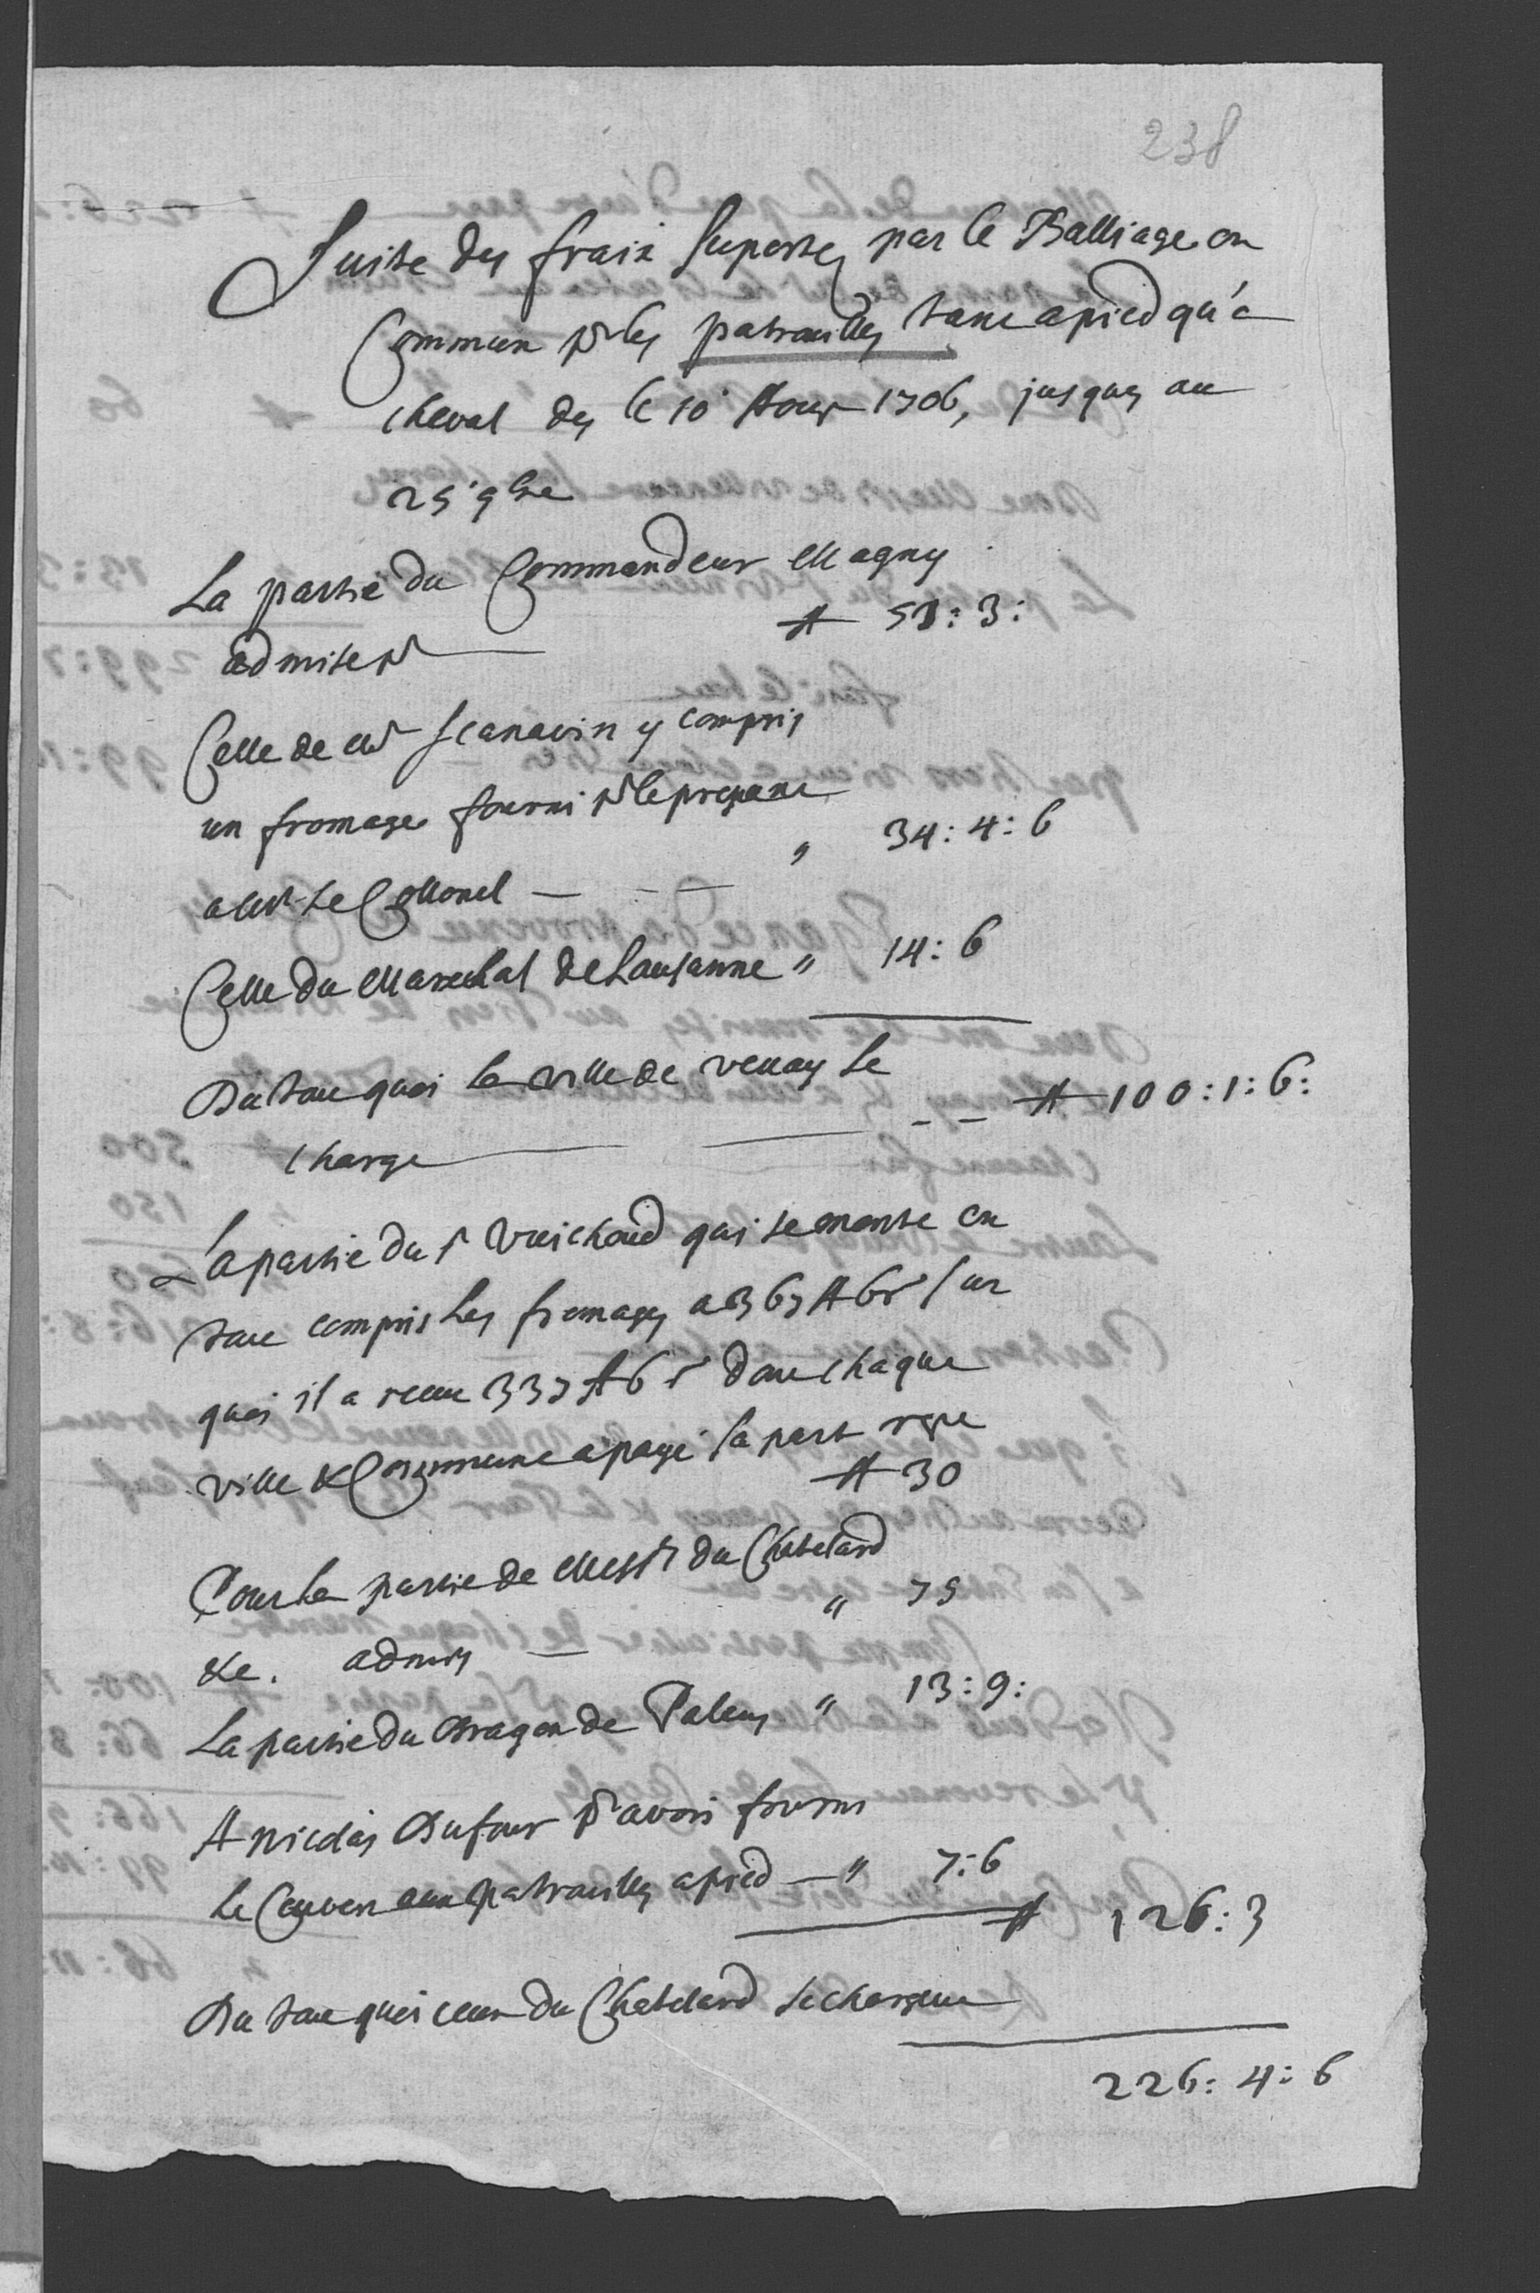 238
Suite des fraix suportez par le Balliage en
Commun pr les patrouilles tant a pied qu'a
cheval des le 10e Aoust 1706, jusques au
25e 9bre
La partie du Commandeur Magny
admise pr ₶ 53:3:
Celle de Mr Scanavin y compris
un fromage fourni pr le present
a Mr le Collonel — - — " 34:4:6
Celle du Mareschal de Lausanne " 14:6
Du tout quoi la ville de Vevay se
charge — — -- ₶ 100:1:6:
La partie du Sr Vuichoud qui se monte en
tout compris les fromages a 367 ₶ 6 s sur
quoi il a receu 337 ₶ 6 s dont chaque
ville & Commune a payé sa part reste
₶ 30
Pour la partie de Messrs du Chatelard
&c. admis — " 75
La partie du Dragon de Palens " 13:9:
A Nicolas Dufour pr avoir fourni
le Couvert aux patrouilles a pied — " 7:6
₶ 126:3
Du tout quoi ceux du Chatelard se chargent
226:4:6